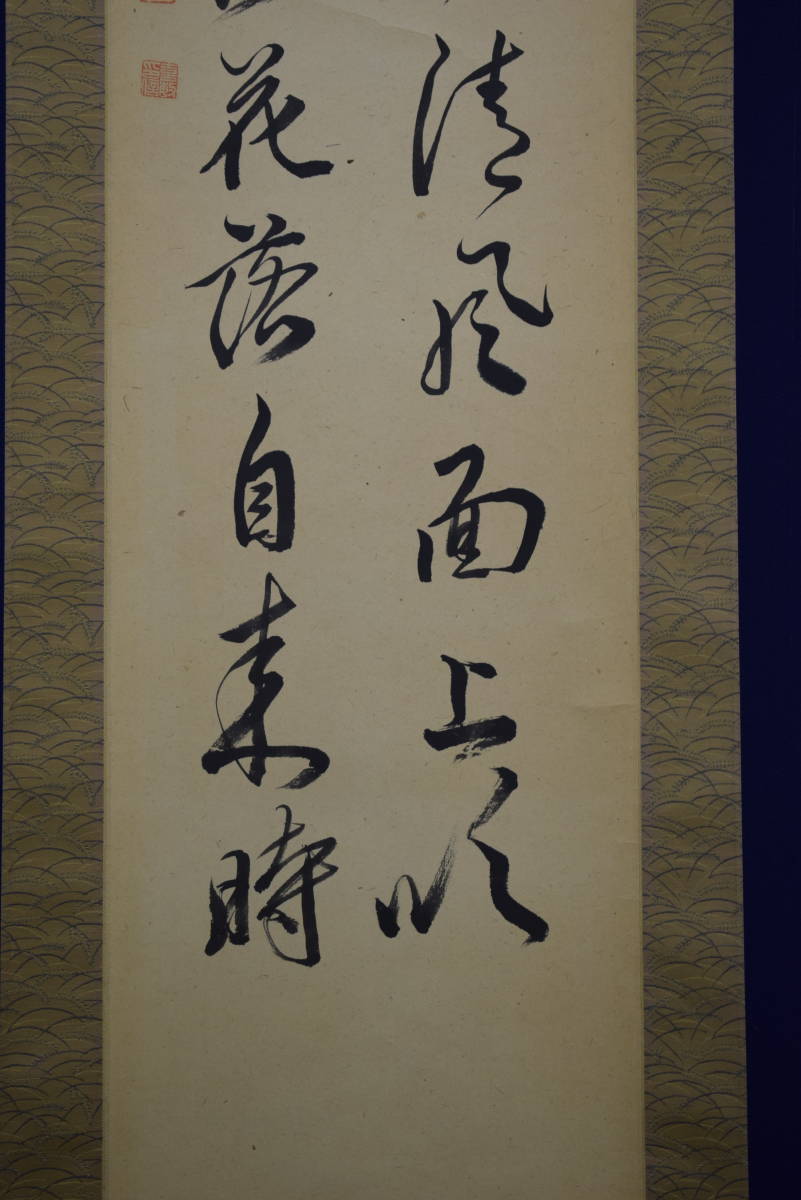 清風面上吹
花落自来時